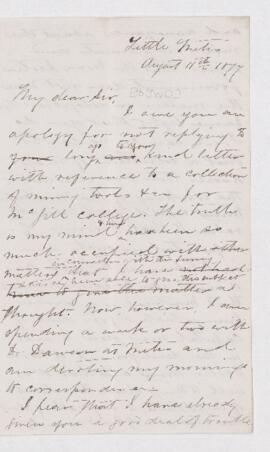 Little Metis
August 11th 1877
My dear Sir,
I owe you an
apology for not replying to
your long ago kind letter
with reference to a collection
of mining tools &c for
McGill College. The truth
is my mind & time has been so
much occupied with other
matters that I have
thought. Now, however, I am
spending a week or two with
Dr Dawson at Metis and
am devoting my mornings
to correspondence.
I fear that I have already
given you a good deal of trouble